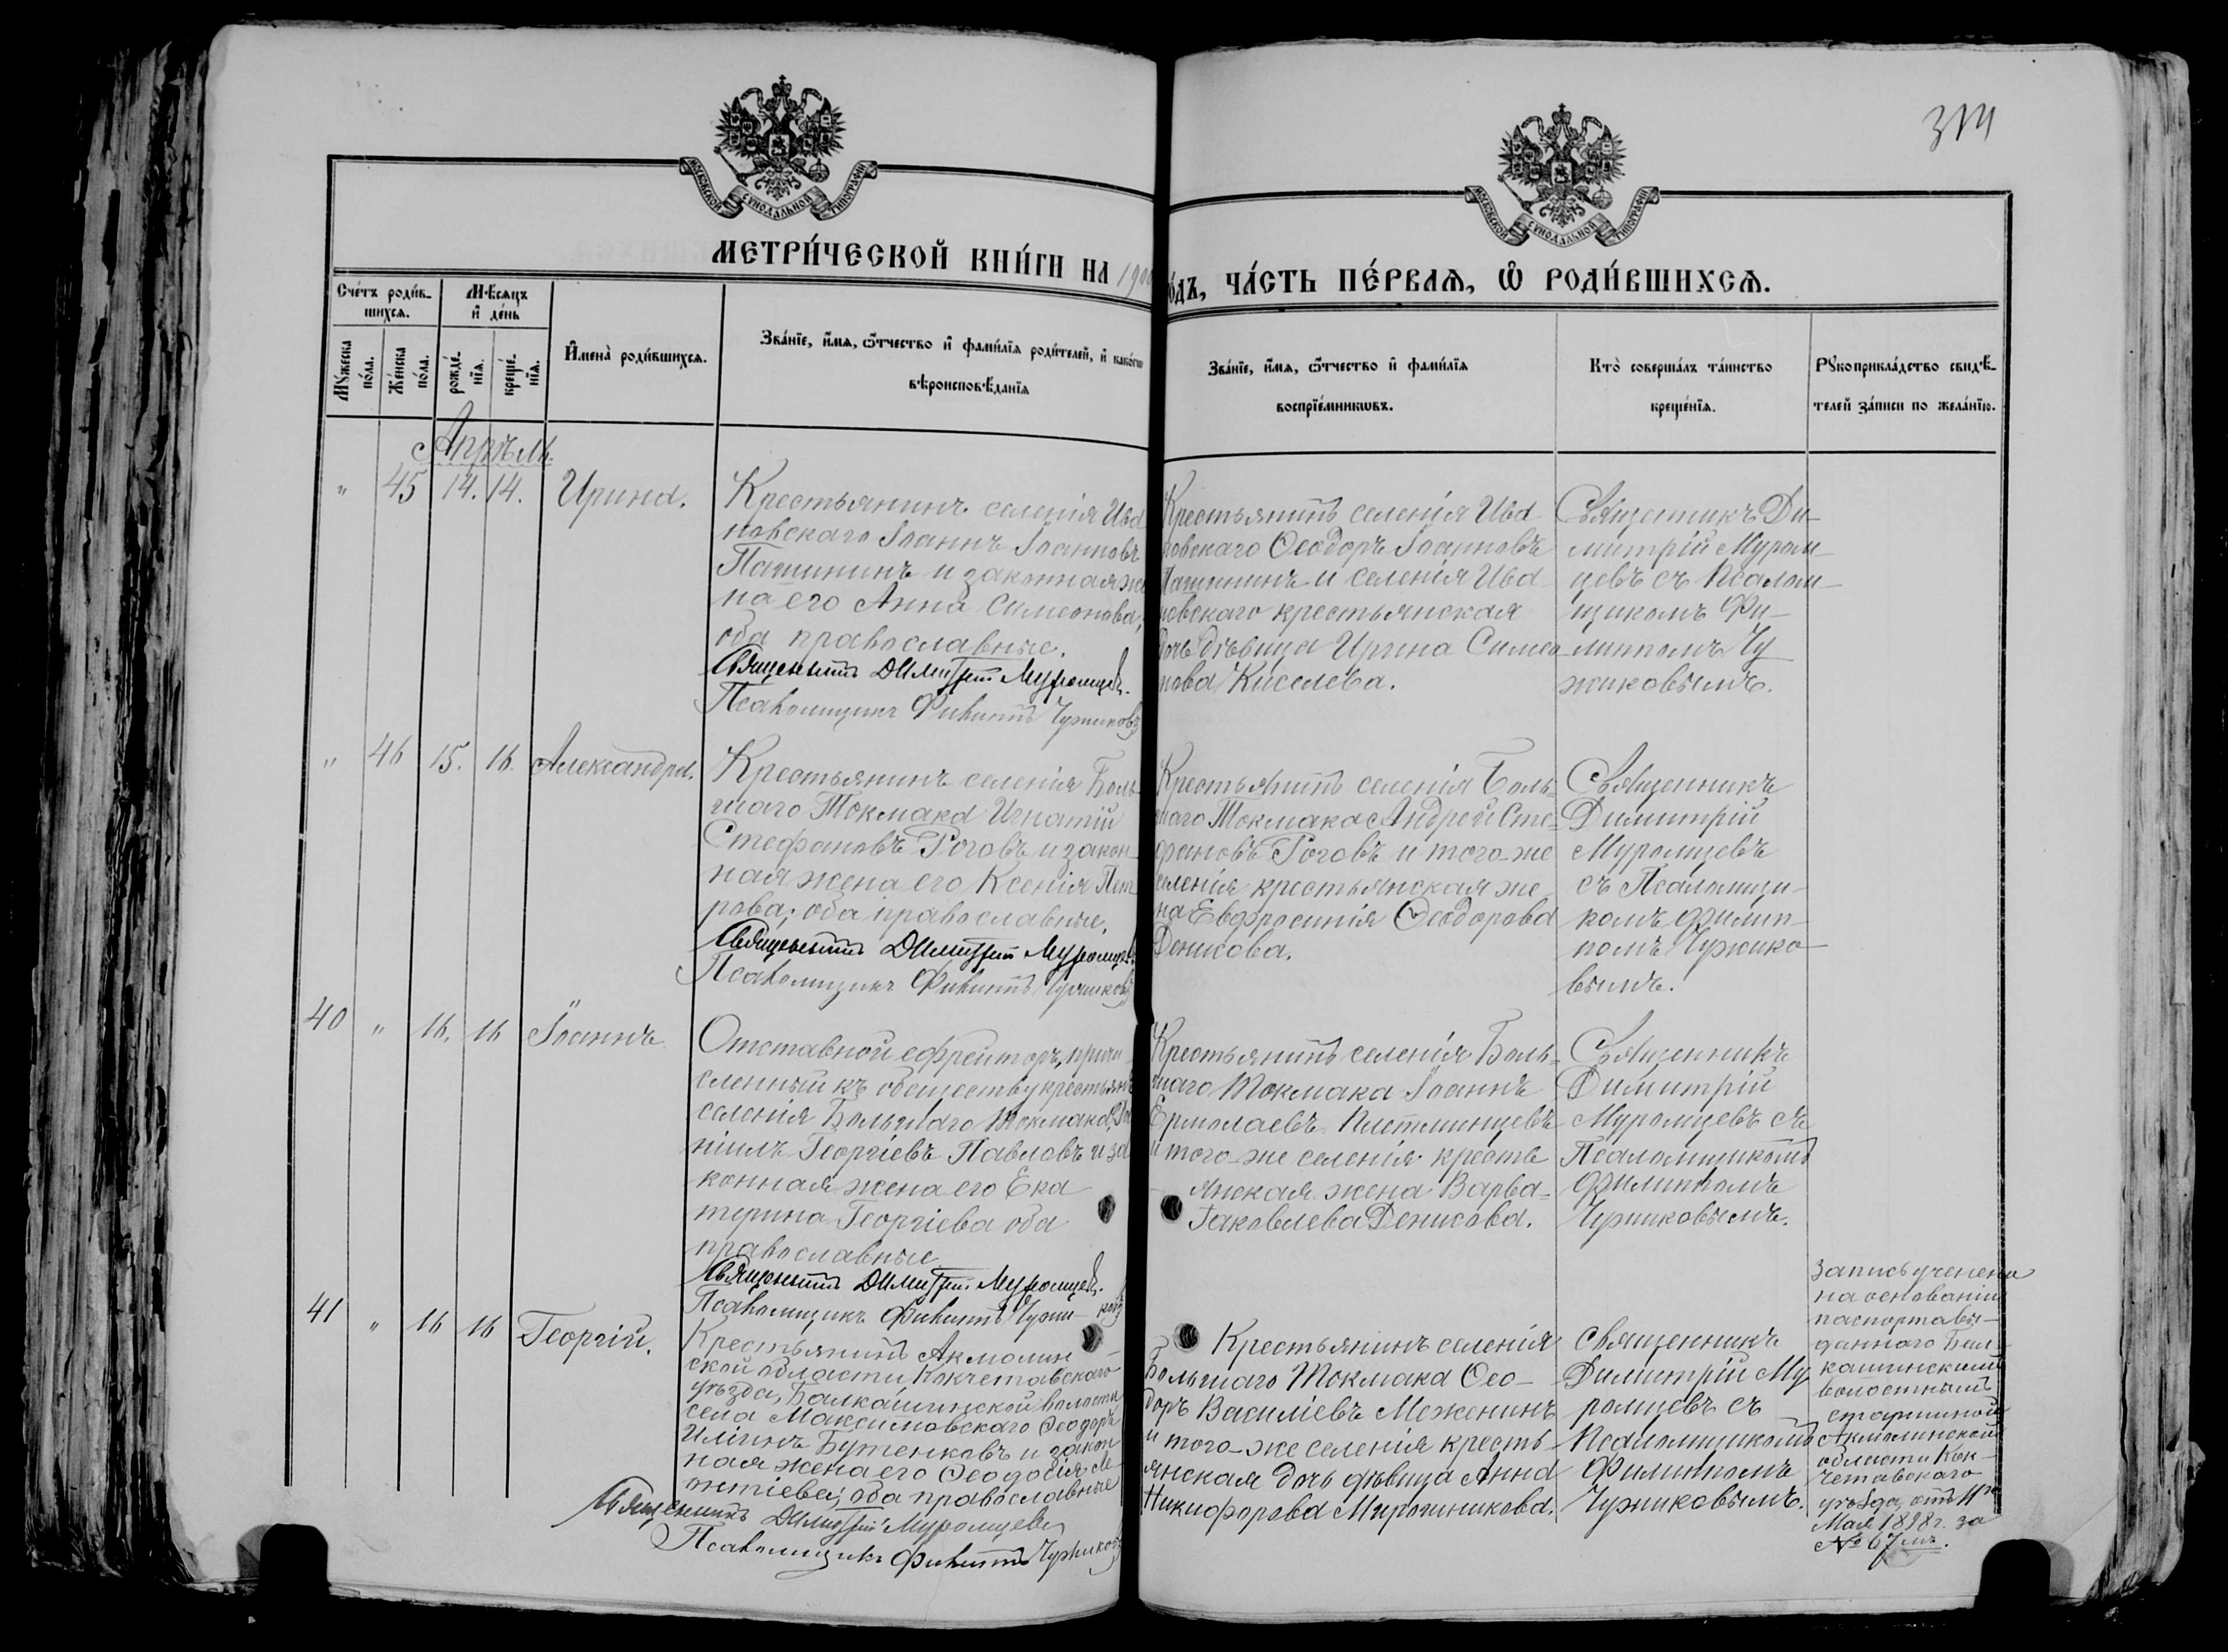 314
МОСКОВСКОЙ СѴНОДАЛЬНОЙ ТИПОГРАФІИ
МОСКОВСКОЙ СѴНОДАЛЬНОЙ ТИПОГРАФІИ
МЕТРИ́ЧЕСКОЙ КНИ́ГИ НА 1900
О́ДЪ, ЧА́СТЬ ПЕ́РВАЯ, Ѿ РОДИ́ВШИХСЯ.
Сче́тъ роди́в-
шихся.
Мѣсяцъ
и де́нь
Мꙋжеска
по́ла.
Же́нска
по́ла.
рожде́-
нія.
креще́-
нія.
Имена̀ роди́вшихся.
Зва́нїе, и́мя, ѻ́тчество и фами́лїя роди́телей, и како́гѡ
вѣроисповѣ́данїя
Зва́нїе, и́мя, ѻ́тчество и фами́лїя
воспрїе́мникѡвъ.
Кто̀ соверша́лъ та́инство
креще́нїя.
Рꙋкоприкла́дство свидѣ́-
телей за́писи по жела́нїю.
Апрѣль.
" 45 14. 14. Ирина.
Крестьянинъ селенія Ива
новскаго Іоаннъ Іоанновъ
Пашининъ и законная же
на его Анна Симеонова,
оба православные.
Священникъ Димитрій Муромцевъ.
Псаломщикъ Филиппъ Чужиковъ
Крестьянинъ селенія Ива-
новскаго Ѳеодоръ Іоанновъ
Пашининъ и селенія Ива-
новскаго крестьянская
дочь дѣвица Ирина Симео
нова Киселева.
Священникъ Ди-
митрій Муром-
цевъ съ Псалом-
щикомъ Фи-
липпомъ Чу
жиковымъ.
" 46 15. 16. Александра.
Крестьянинъ селенія Боль
шаго Токмака Игнатій
Стефановъ Роговъ и закон-
ная жена его Ксенія Пет
рова; оба православные.
Священникъ Димитрій Муромцевъ.
Псаломщикъ Филиппъ Чужиковъ
Крестьянинъ селенія Боль-
шаго Токмака Андрей Сте-
фановъ Роговъ и того-же
селенія крестьянская же
на Евфросинія Ѳеодорова
Денисова.
Священникъ
Димитрій
Муромцевъ
съ Псаломщи-
комъ Филип-
помъ Чужико-
вымъ.
40 " 16. 16 Іоаннъ
Отставной ефрейторъ, причи
сленный къ обществу крестьянъ
селенія Большаго Токмака, Да
ніилъ Георгіевъ Павловъ и за
конная жена его Ека
терина Георгіева оба
православные
Священникъ Димитрій Муромцевъ.
Псаломщикъ Филиппъ Чужи-ковъ
Крестьянинъ селенія Боль-
шаго Токмака Іоаннъ
Ермолаевъ
и того-же селенія кресть
янская жена Варва-
Іаковлева Денисова.
Священникъ
Димитрій
Муромцевъ съ
Псаломщикомъ
Филиппомъ
Чужиковымъ.
41 " 16 16 Георгій.
Крестьянинъ Акмолин-
ской области Кокчетавскаго
уѣзда, Балкашинской волости
села Максимовскаго Ѳеодоръ
Иліинъ Бутенковъ и закон
ная жена его Ѳеодосія Ме-
тіева; оба православные
Священникъ Димитрій Муромцевъ
Псаломщикъ Филиппъ Чужиковъ
Крестьянинъ селенія
Большаго Токмака Ѳео-
доръ Василіевъ Меженинъ
и того-же селенія кресть-
янская дочь дѣвица Анна
Никифорова Мирошникова.
Священникъ
Димитрій Му
ромцевъ съ
Псаломщикомъ
Филиппомъ
Чужиковымъ.
Запись ученена
на основаніи
паспорта вы-
даннаго Бал-
кашинскимъ
волостнымъ
старшиной
Акмолинской
области Кок-
четавскаго
уѣзда, отъ 11го
Мая 1898 г. за
№ 67мъ.